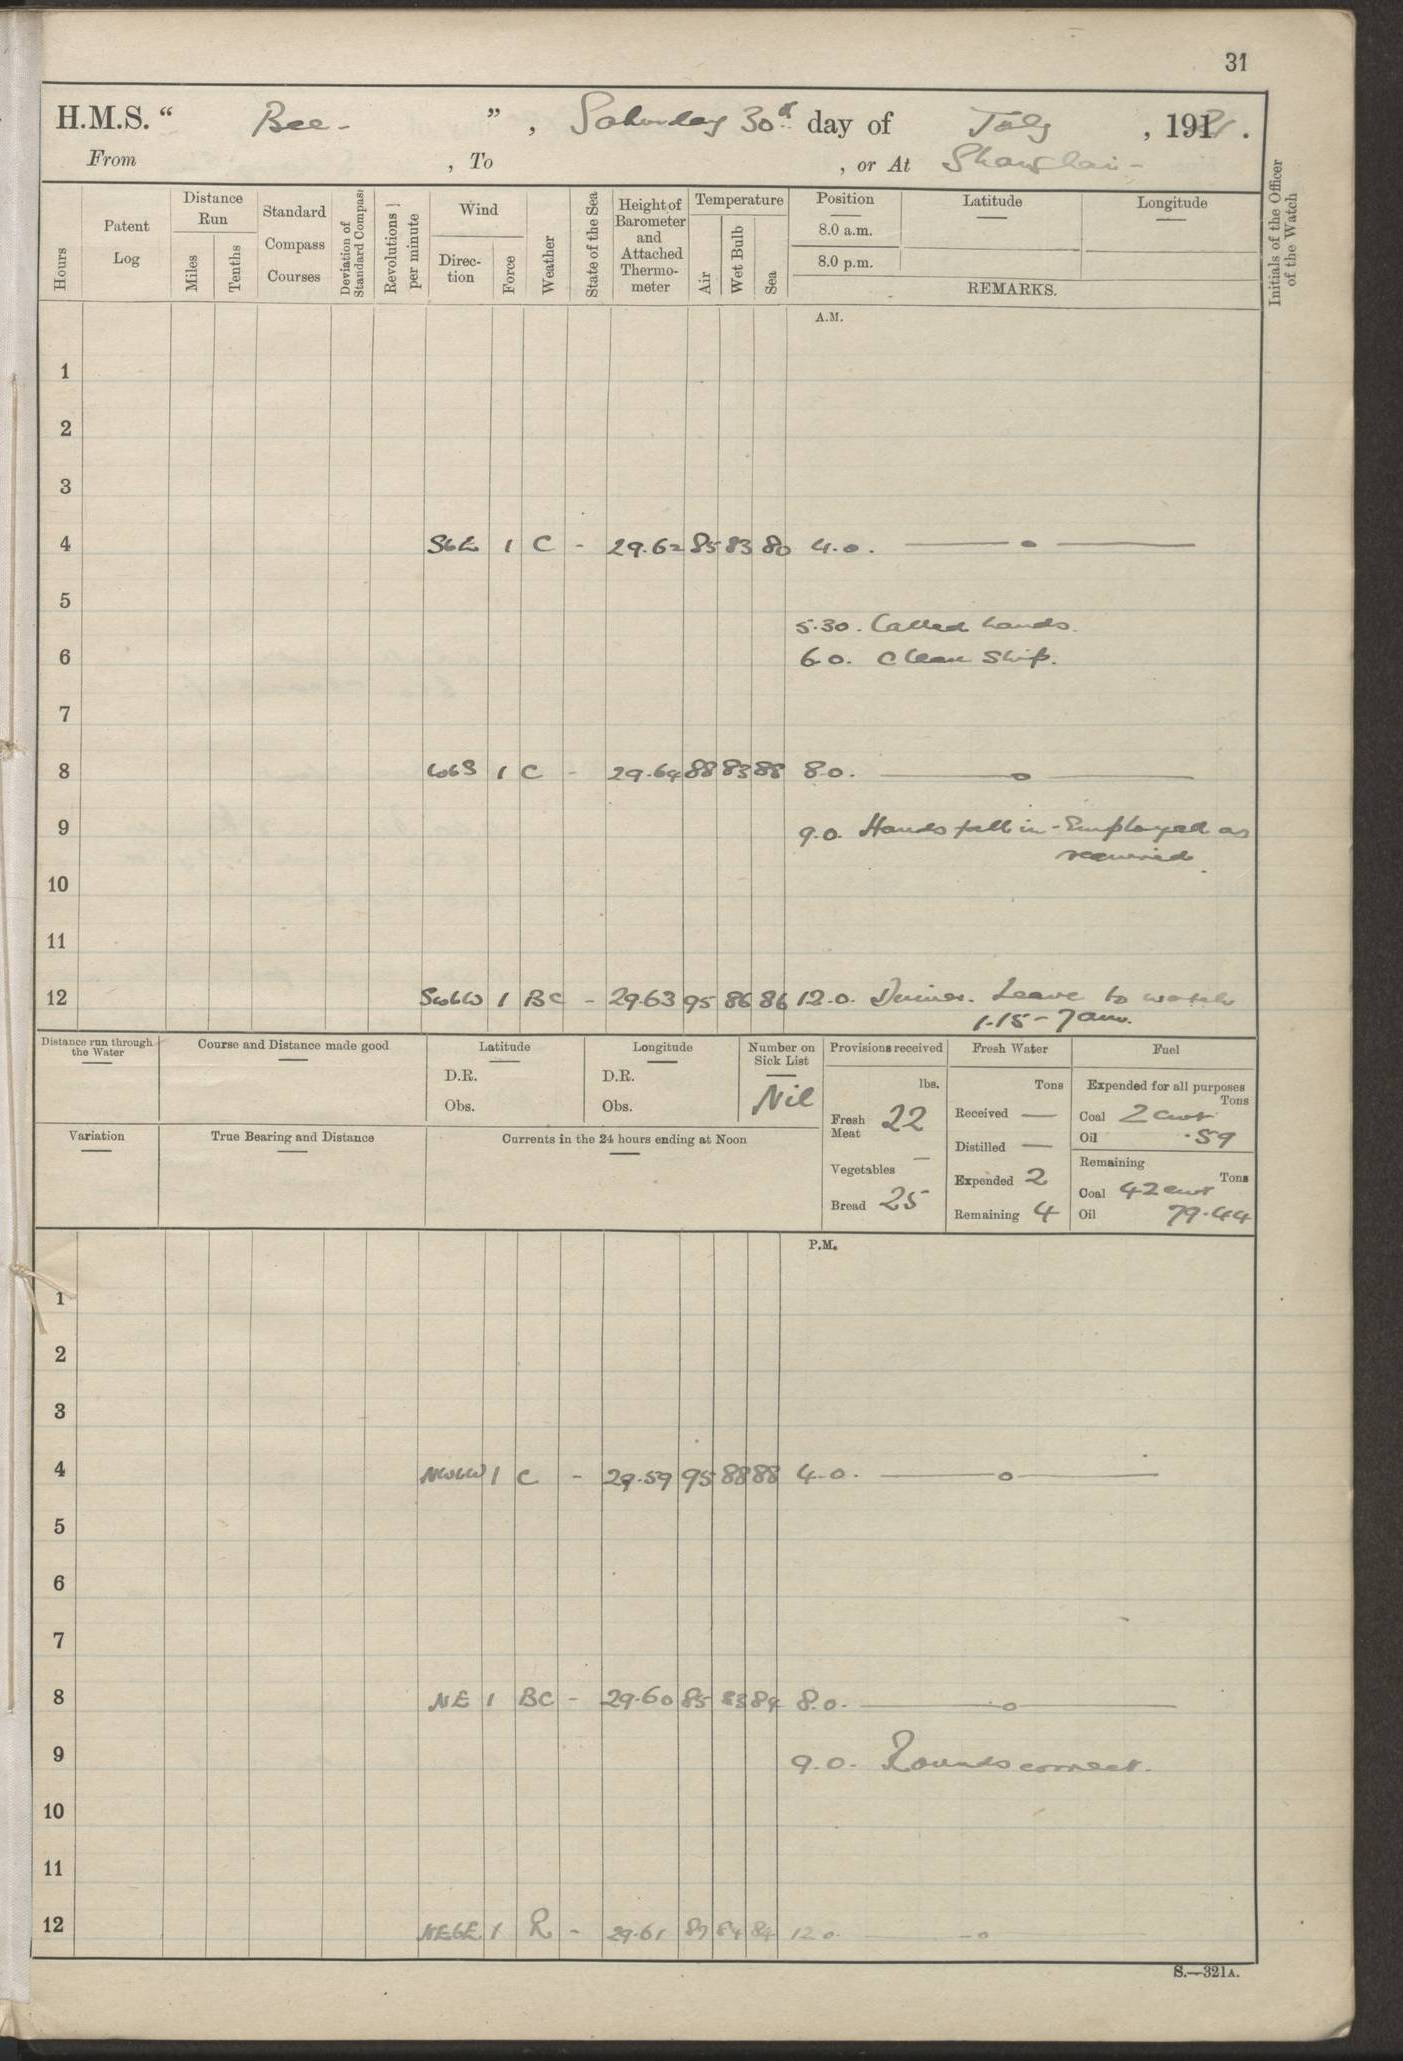 31
H.M.S. “ Bee - ” , Saturday 30th day of July , 1921 .
From , To , or At Shanghai -
Hours
Patent Log
Distance Run
Miles
Tenths
Standard Compass Courses
Deviation of Standard Compass
Revolutions per minute
Wind
Direc-tion
Force
Weather
State of the Sea
Height of Barometer and Attached Thermo-meter
Temperature
Air
Wet Bulb
Sea
Position
8.0 a.m.
8.0 p.m.
Latitude
Longitude
REMARKS.
Initials of the Officer of the Watch
A.M.
1
2
3
4 SbE 1 C - 29.62 85 83 80 4.0. — o —
5
5.30. Called hands.
6 6.0. Clean Ship.
7
8 WbS 1 C - 29.64 88 83 88 8.0. — o —
9 9.0. Hands fell in - Employed as
required.
10
11
12 SWbW 1 BC - 29.63 95 86 86 12.0. Dinner. Leave to watch
1.15 - 7 am.
Distance run through the Water
Course and Distance made good
Latitude
D.R.
Obs.
Longitude
D.R.
Obs.
Number on Sick List
Nil
Variation
True Bearing and Distance
Currents in the 24 hours ending at Noon
Provisions received
lbs.
Fresh Meat 22
Vegetables —
Bread 25
Fresh Water
Tons
Received —
Distilled —
Expended 2
Remaining 4
Fuel
Expended for all purposes
Tons
Coal 2 cwt
Oil .59
Remaining
Tons
Coal 42 cwt
Oil 79.44
P.M.
1
2
3
4 NWbW 1 C - 29.59 95 88 88 4.0. — o —
5
6
7
8 NE 1 BC - 29.60 85 83 84 8.0. — o —
9 9.0. Rounds correct.
10
11
12 NEbE 1 R - 29.61 84 84 12.0. — o
S.—321A.